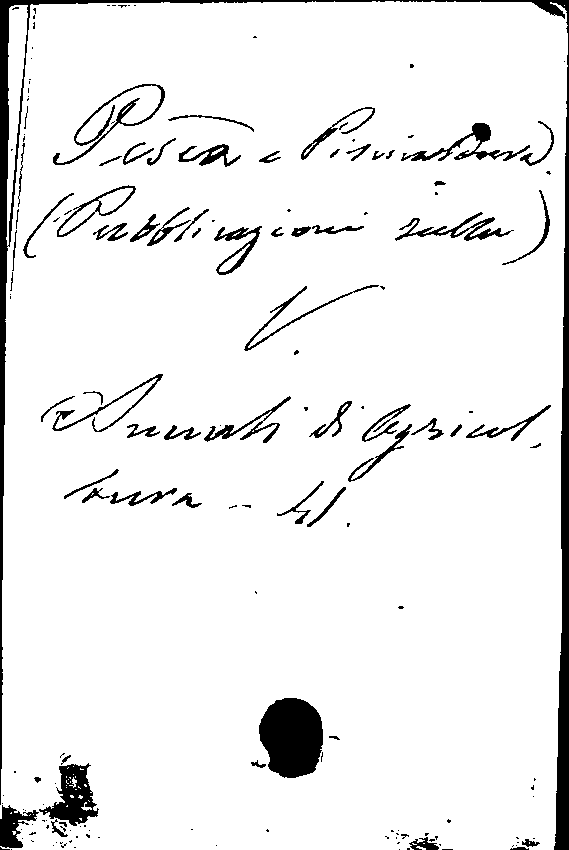 Pesca e Piscicoltura.
(Pubblicazioni sulla)
V.
Annali di Agricol-
tura - 41.